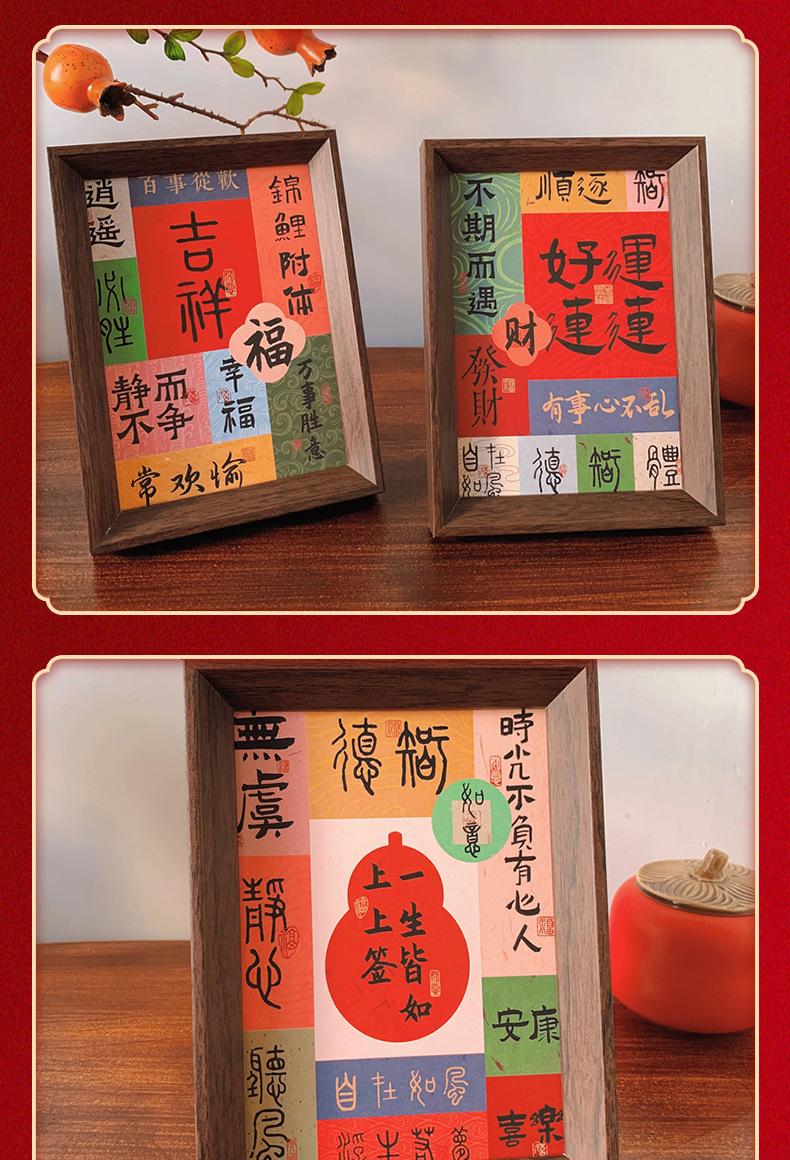 逍遥
百事從歡
錦鯉附体
吉祥
福
静而不争
幸福
万事胜意
常欢愉
不期而遇
順遂
好運連連
财
發財
有事心不乱
自在如風
德
體
無虞
德
如意
時光不負有心人
一生皆如
上上签
靜心
安康
聽風
自在如風
喜樂
浮生若夢